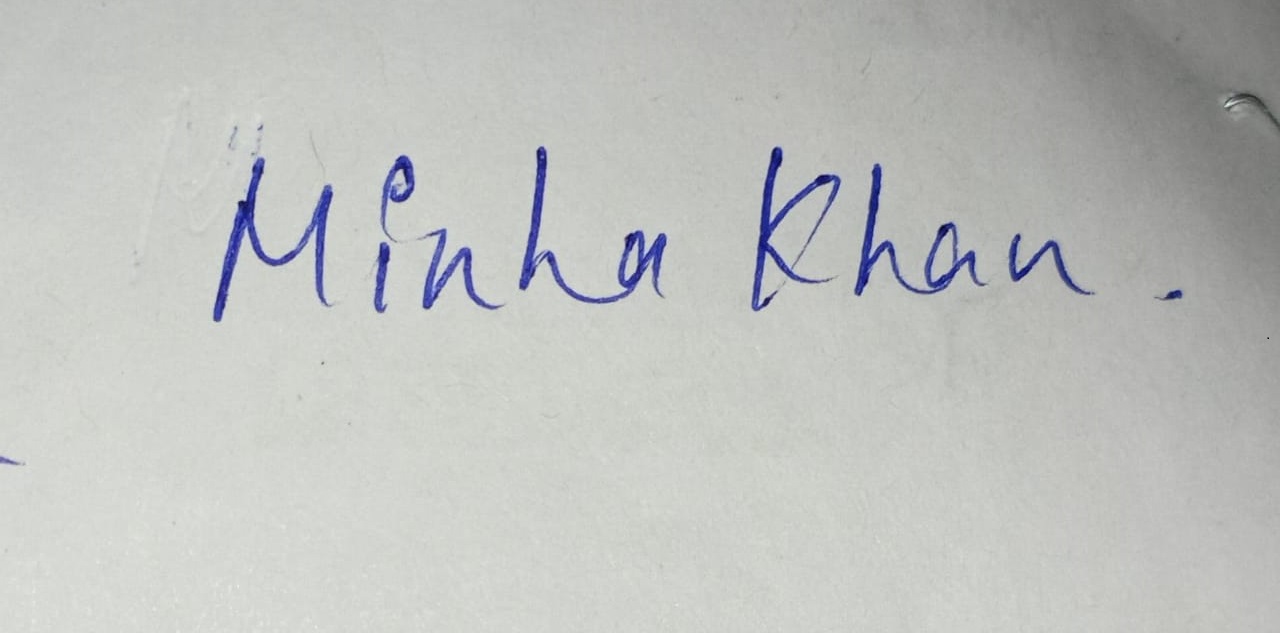 Minha Khan.